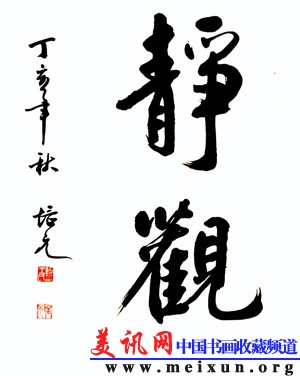 靜觀
丁亥年秋 培元
美讯网
中国书画收藏频道
www.meixun.org